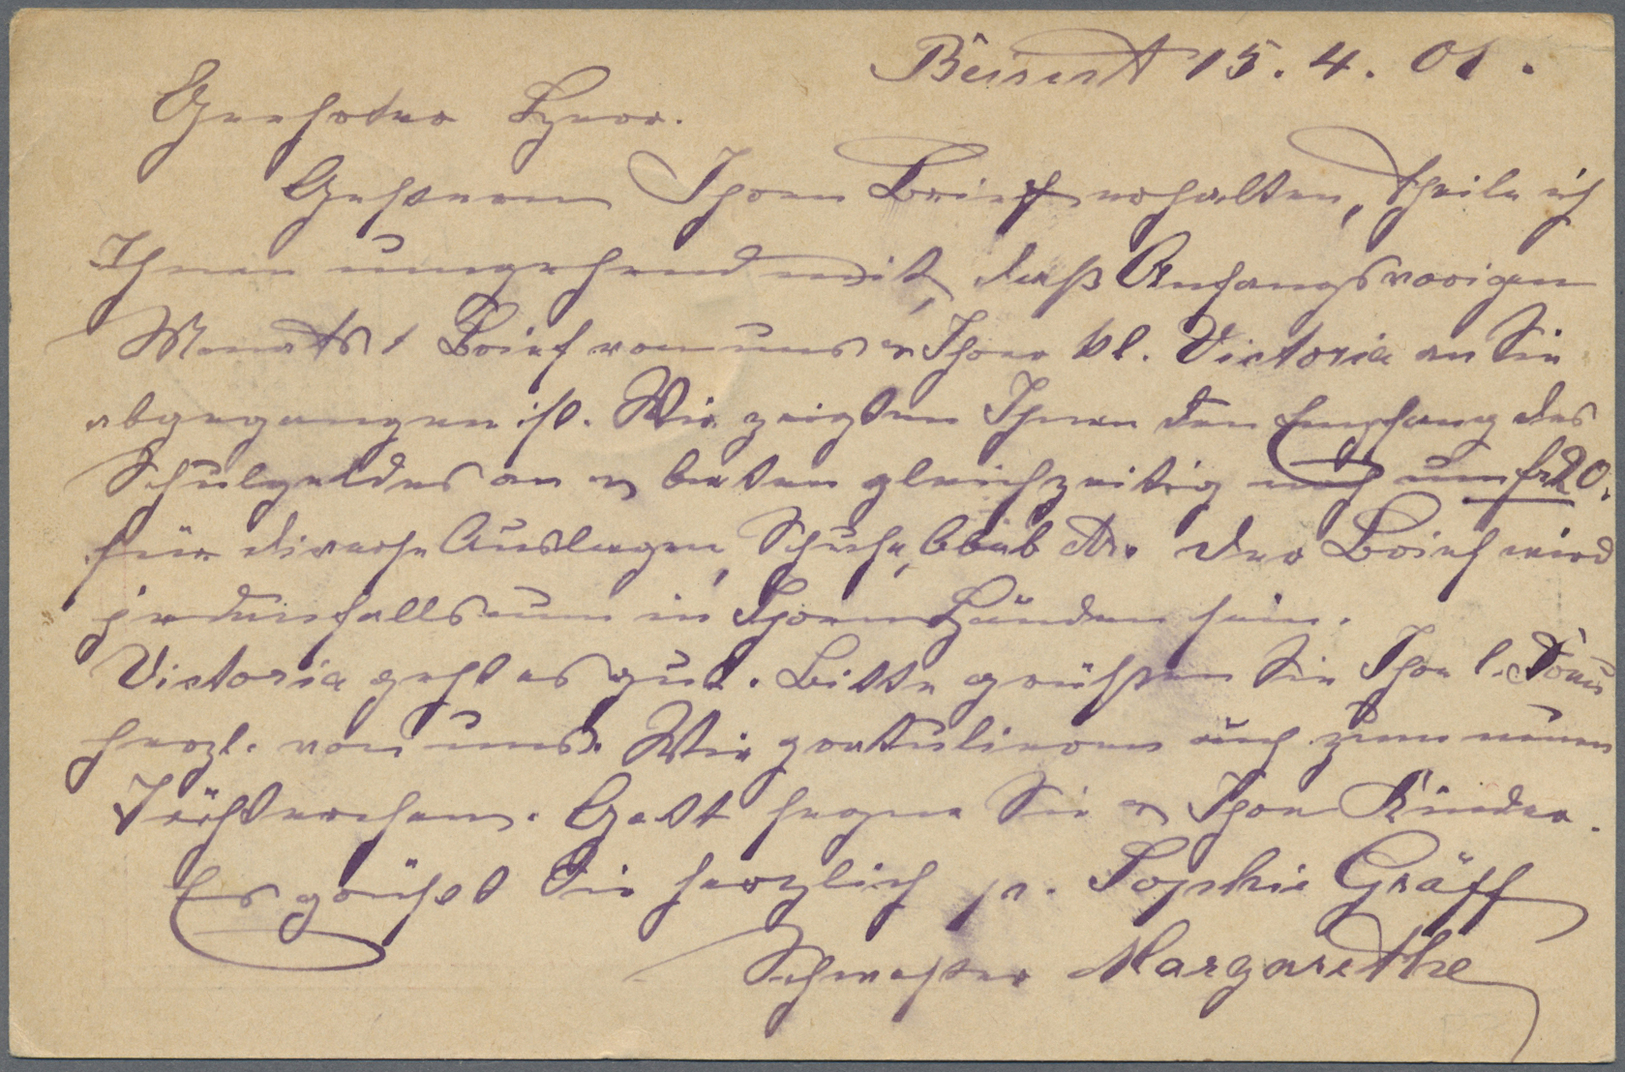 Beirut 15.4.01.
Geehrter Herr.
Gestern Ihren Brief erhalten, theile ich
Ihnen umgehend mit, daß Anfangs vorigen
Monats 1 Brief von uns u Ihrer kl. Victoria an Sie
abgegangen ist. Wir zeigten Ihnen den Empfang des
Schulgeldes an u baten gleichzeitig noch um fr 20.
für diverse Auslagen, Schuhe, etc. Der Brief wird
jedenfalls nun in Ihren Händen sein.
Victoria geht es gut. Bitte grüßen Sie Ihre l. Frau
herzl. von uns. Wir gratulieren auch zum neuen
Töchterchen. Gott segne Sie u Ihre Kinder.
Es grüßt Sie herzlich pr. Sophie Gräff
Schwester Margarethe